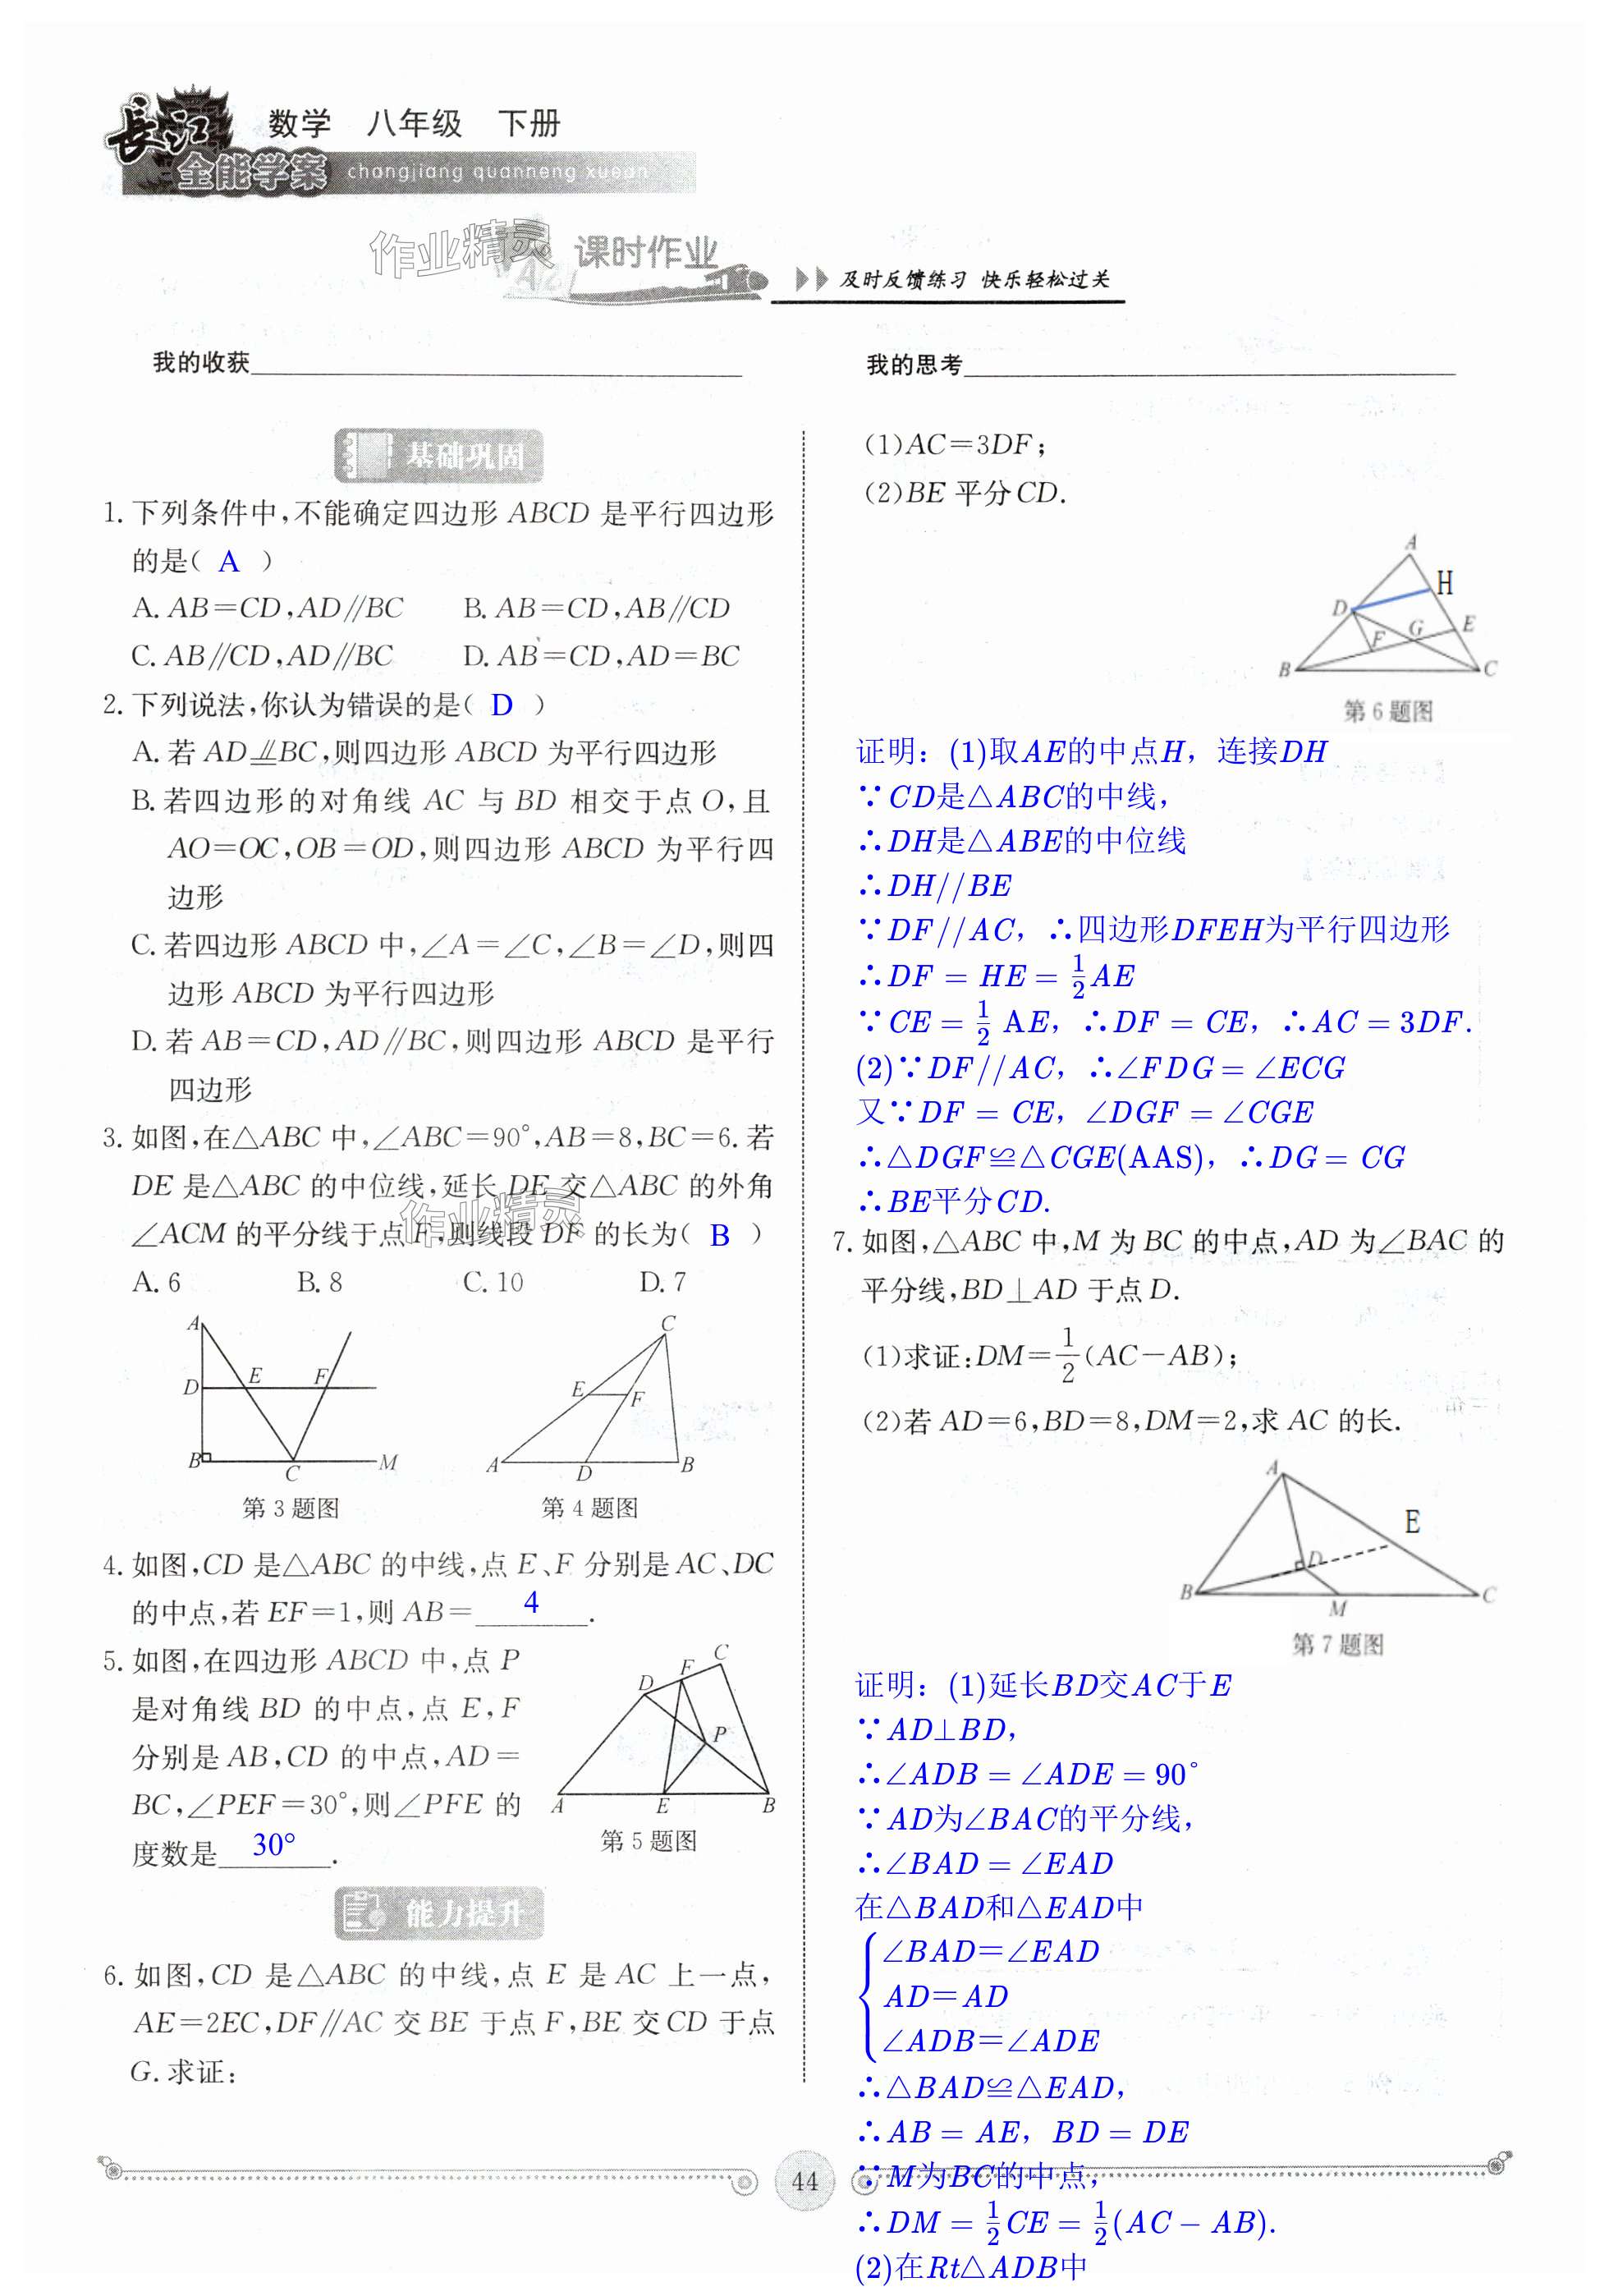 长江
数学 八年级 下册
全能学案 changjiang quanneng xuean
作业精灵
课时作业
及时反馈练习 快乐轻松过关
我的收获
我的思考
基础巩固
1. 下列条件中,不能确定四边形 ABCD 是平行四边形
的是( A )
A. AB=CD,AD∥BC B. AB=CD,AB∥CD
C. AB∥CD,AD∥BC D. AB=CD,AD=BC
2. 下列说法,你认为错误的是( D )
A. 若 AD⫫BC,则四边形 ABCD 为平行四边形
B. 若四边形的对角线 AC 与 BD 相交于点 O,且
AO=OC,OB=OD,则四边形 ABCD 为平行四
边形
C. 若四边形 ABCD 中,∠A=∠C,∠B=∠D,则四
边形 ABCD 为平行四边形
D. 若 AB=CD,AD∥BC,则四边形 ABCD 是平行
四边形
3. 如图,在△ABC 中,∠ABC=90°,AB=8,BC=6. 若
DE 是△ABC 的中位线,延长 DE 交△ABC 的外角
∠ACM 的平分线于点 F,则线段 DF 的长为( B )
作业精灵
A. 6 B. 8 C. 10 D. 7
A D E F B C M
第 3 题图
C E F A D B
第 4 题图
4. 如图,CD 是△ABC 的中线,点 E、F 分别是 AC、DC
的中点,若 EF=1,则 AB= 4 .
5. 如图,在四边形 ABCD 中,点 P
是对角线 BD 的中点,点 E,F
分别是 AB,CD 的中点,AD=
BC,∠PEF=30°,则∠PFE 的
度数是 30° .
C F D P A E B
第 5 题图
能力提升
6. 如图,CD 是△ABC 的中线,点 E 是 AC 上一点,
AE=2EC,DF∥AC 交 BE 于点 F,BE 交 CD 于点
G. 求证:
(1)AC=3DF;
(2)BE 平分 CD.
A H D G E F B C
第 6 题图
证明：(1)取AE的中点H，连接DH
∵CD是△ABC的中线，
∴DH是△ABE的中位线
∴DH//BE
∵DF//AC，∴四边形DFEH为平行四边形
∴DF = HE = 1/2 AE
∵CE = 1/2 AE，∴DF = CE，∴AC = 3DF.
(2)∵DF//AC，∴∠FDG = ∠ECG
又∵DF = CE，∠DGF = ∠CGE
∴△DGF≌△CGE(AAS)，∴DG = CG
∴BE平分CD.
7. 如图,△ABC 中,M 为 BC 的中点,AD 为∠BAC 的
平分线,BD⊥AD 于点 D.
(1)求证:DM=1/2(AC−AB);
(2)若 AD=6,BD=8,DM=2,求 AC 的长.
A E D B M C
第 7 题图
证明：(1)延长BD交AC于E
∵AD⊥BD，
∴∠ADB = ∠ADE = 90°
∵AD为∠BAC的平分线，
∴∠BAD = ∠EAD
在△BAD和△EAD中
∠BAD=∠EAD
AD=AD
∠ADB=∠ADE
∴△BAD≌△EAD，
∴AB = AE，BD = DE
∵M为BC的中点，
∴DM = 1/2 CE = 1/2(AC − AB).
(2)在Rt△ADB中
44